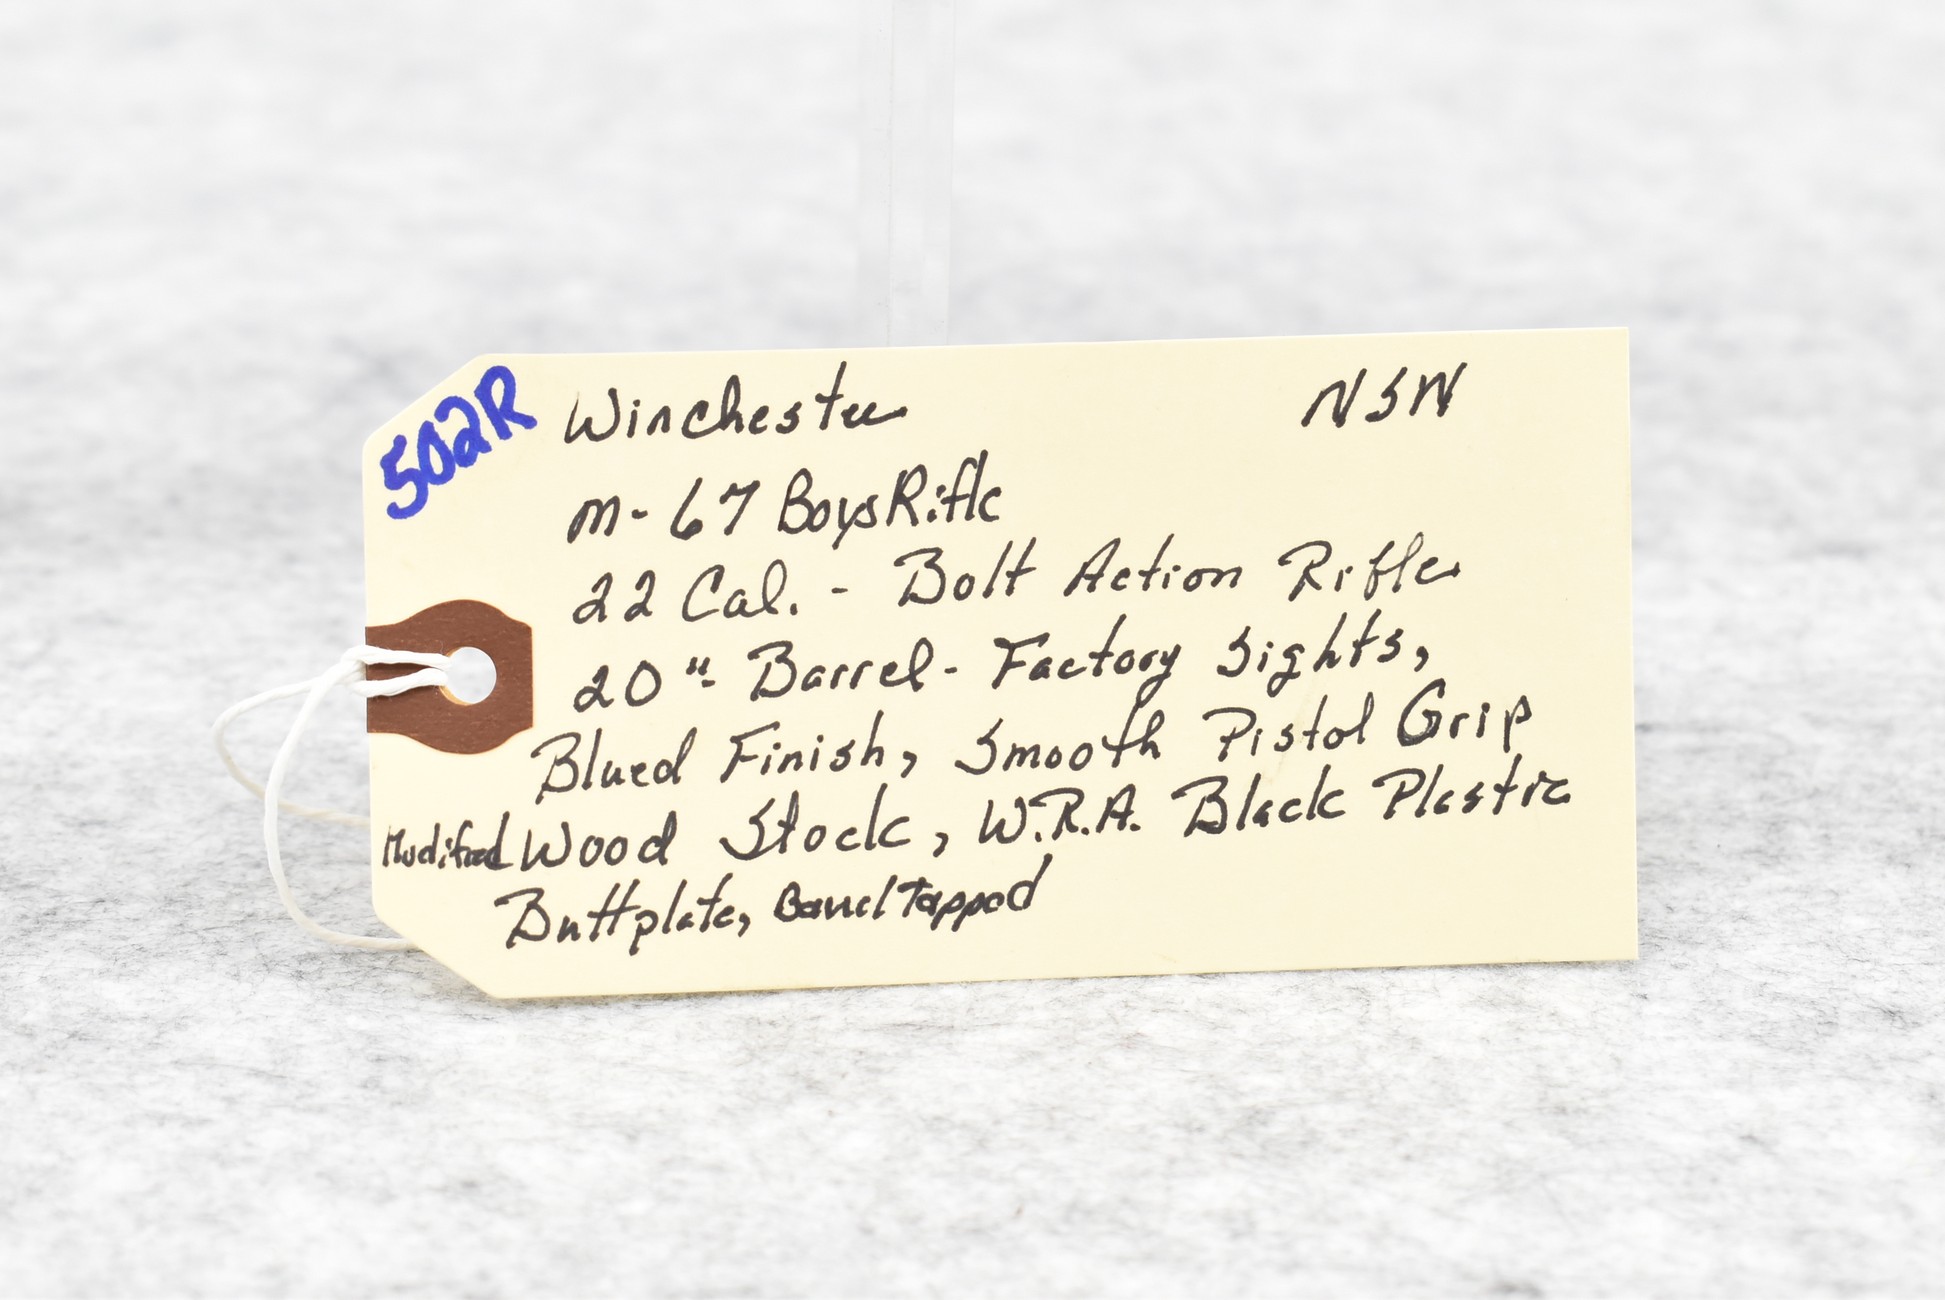 502R
Winchester NSN
M-67 Boys Rifle
22 Cal. - Bolt Action Rifle
20"- Barrel - Factory Sights,
Blued Finish, Smooth Pistol Grip
Modified Wood Stock, W.R.A. Black Plastic
Buttplate, Barrel Tapped